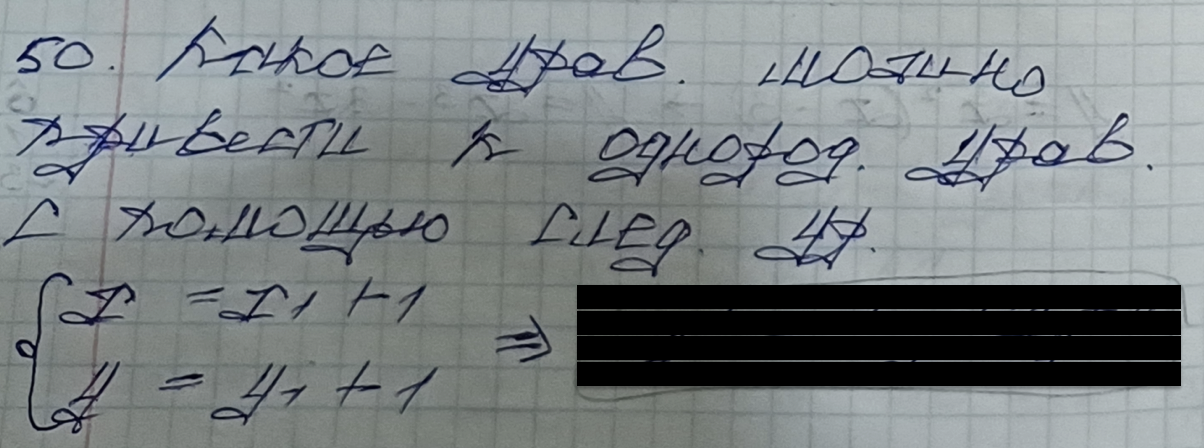 50. Какое урав. можно
привести к однород. урав.
с помощью след. ур.
x = x₁ + 1 ⇒
y = y₁ + 1